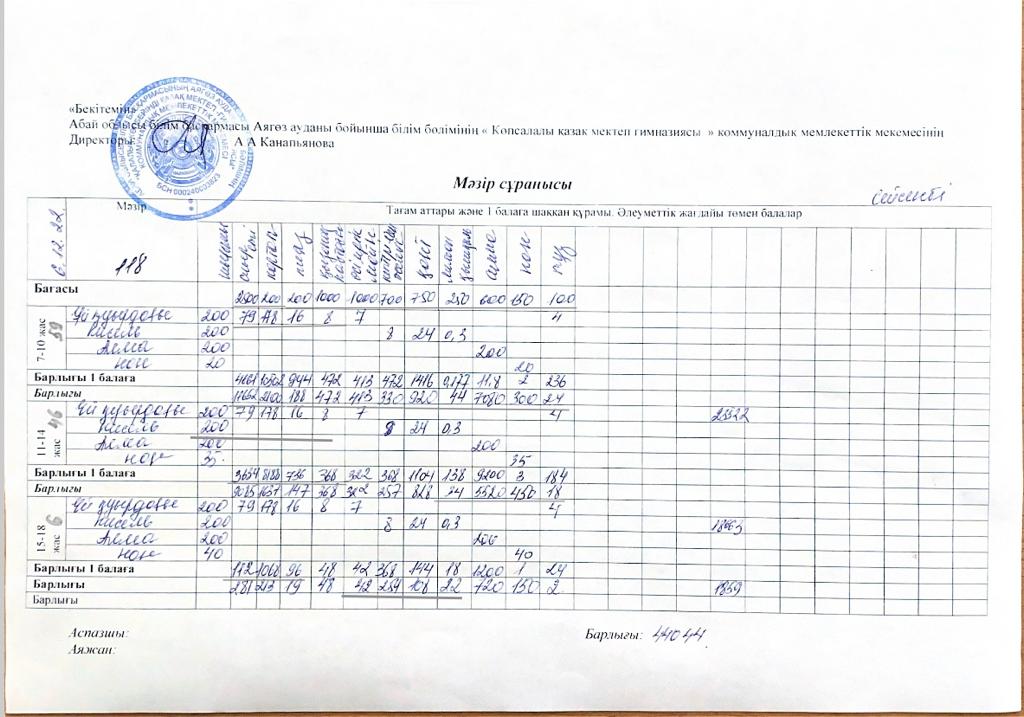 «Бекітемін»
Абай облысы білім басқармасы Аягөз ауданы бойынша білім бөлімінің « Көпсалалы қазақ мектеп гимназиясы » коммуналдық мемлекеттік мекемесінің
Директоры: А А Канапьянова
БСН 000240003823
Мәзір сұранысы
сейсенбі
6. 12. 22
Мәзір
Тағам аттары және 1 балаға шаққан құрамы. Әлеуметтік жағдайы төмен балалар
118
сиыр еті картоп пияз қант алма нан тұз
Бағасы 2500 200 200 1000 1000 700 750 250 600 150 100
7-10 жас 59
Үй қуырдағы 200 79 178 16 8 7 4
Кисель 200 8 24 0,3
Алма 200 200
нан 20 20
Барлығы 1 балаға 4661 10502 944 472 413 472 1416 0,177 11.8 2 236
Барлығы 11652 2100 188 472 413 330 920 44 7080 300 24
11-14 жас 46
Үй қуырдағы 200 79 178 16 8 7 4 23522
Кисель 200 8 24 0,3
Алма 200 200
нан 35. 35
Барлығы 1 балаға 3634 8188 736 368 322 368 1104 138 9200 3 184
Барлығы 9085 1637 147 368 322 257 828 34 5520 450 18
15-18 жас 6
Үй қуырдағы 200 79 178 16 8 7 4
Кисель 200 8 24 0,3
Алма 200 200
нан 40 40
Барлығы 1 балаға 1068 96 48 42 368 144 18 1200 1 24
Барлығы 213 19 48 42 108 22 720 150 2 1859
Барлығы
Аспазшы: Барлығы: 44044
Аяжан: